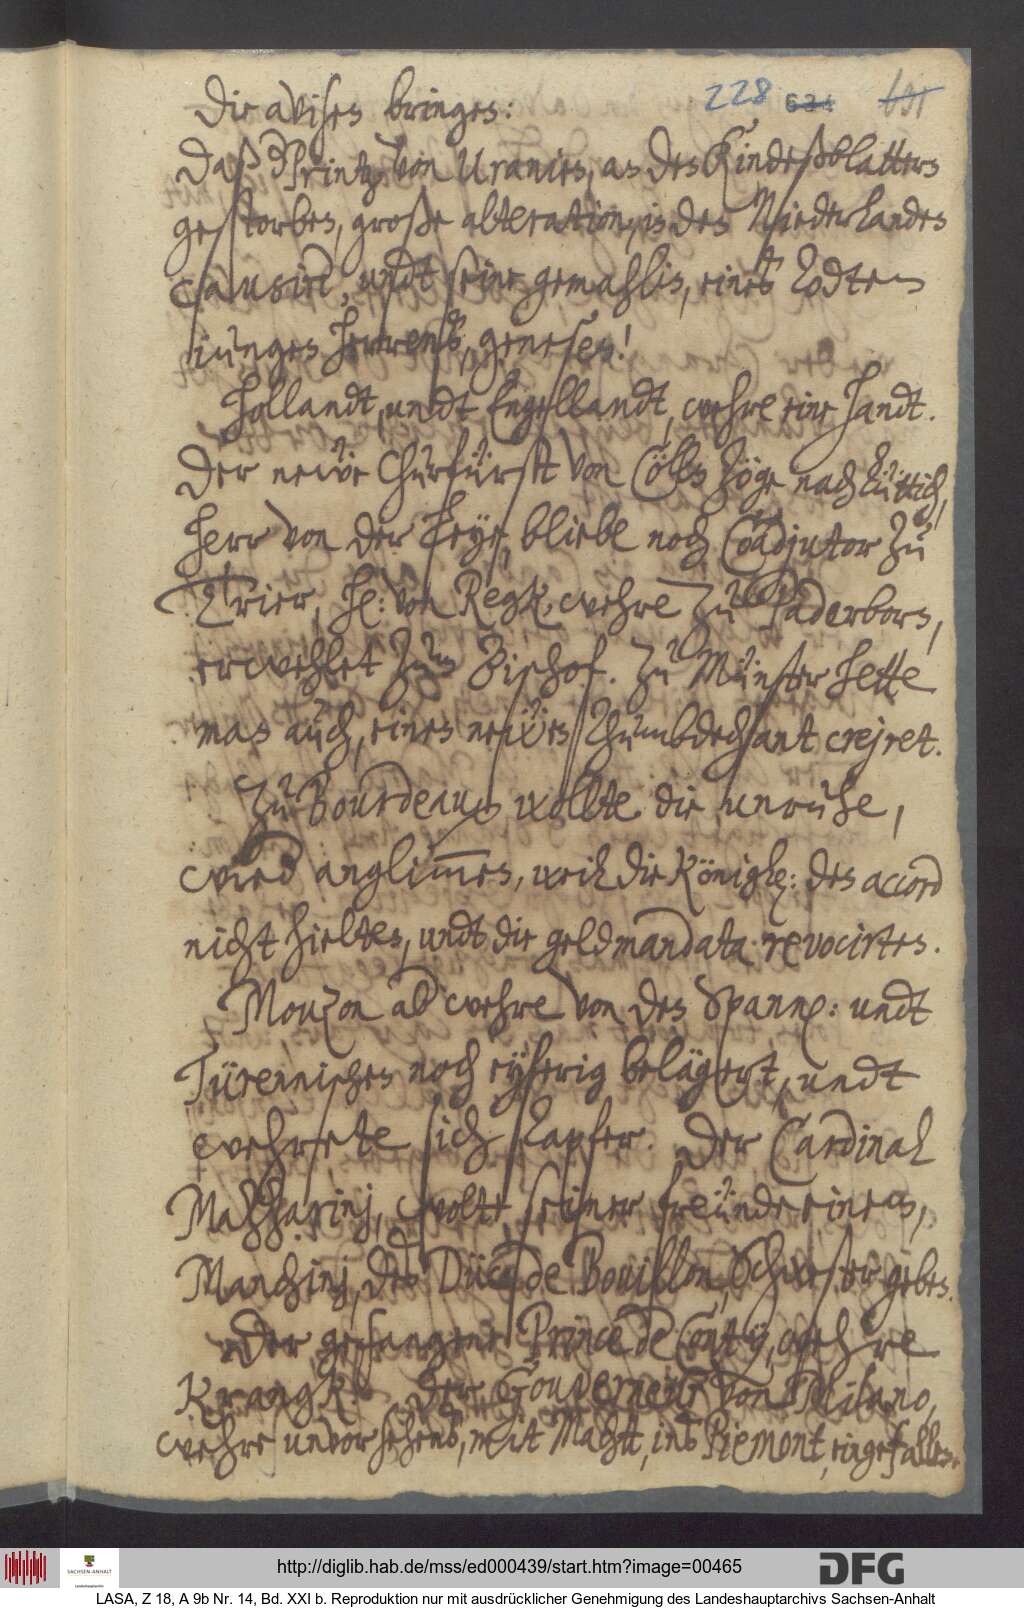 228 631 601
Die avisen bringen:
Daß Printz von Uranien, an den Kindeßblattern
gestorben, große alteration, in den Niederlanden
causirt, undt seine gemahlin, eines Todten
jungen Herrens, genesen!
Hollandt, undt Engellandt, wehre eine handt.
Der neẅe Churfürst von Cölln zöge nach Lüttich,
Herr von der Leye, bliebe noch Coadjutor zu
Trier, H: von Regk, wehre zu Paderborn,
erwehlet zum Bischof. Zu Münster hette
man auch, einen neẅen Thumbdechant creiret.
Zu Bourdeaux wollte die unruhe,
wied anglim̅en, weil die Königl: den accord
nicht hielten, undt die geldmandata revocirten.
Mouzon ab wehre von den Spann: undt
Türennischen noch eyferig belägert, undt
wehrete sich tapfer. Der Cardinal
Mahzarinj, wollte, seiner freünde einem,
Manchinj, des Düc de Bouillon, Schwester geben.
Der gefangene Prince de Conty, wehre
Krangk. Der Gouverneur von Milano,
wehre unvorsehens, mit Macht, ins Piemont, eingefallen.
http://diglib.hab.de/mss/ed000439/start.htm?image=00465
SACHSEN-ANHALT
DFG
LASA, Z 18, A 9b Nr. 14, Bd. XXI b. Reproduktion nur mit ausdrücklicher Genehmigung des Landeshauptarchivs Sachsen-Anhalt